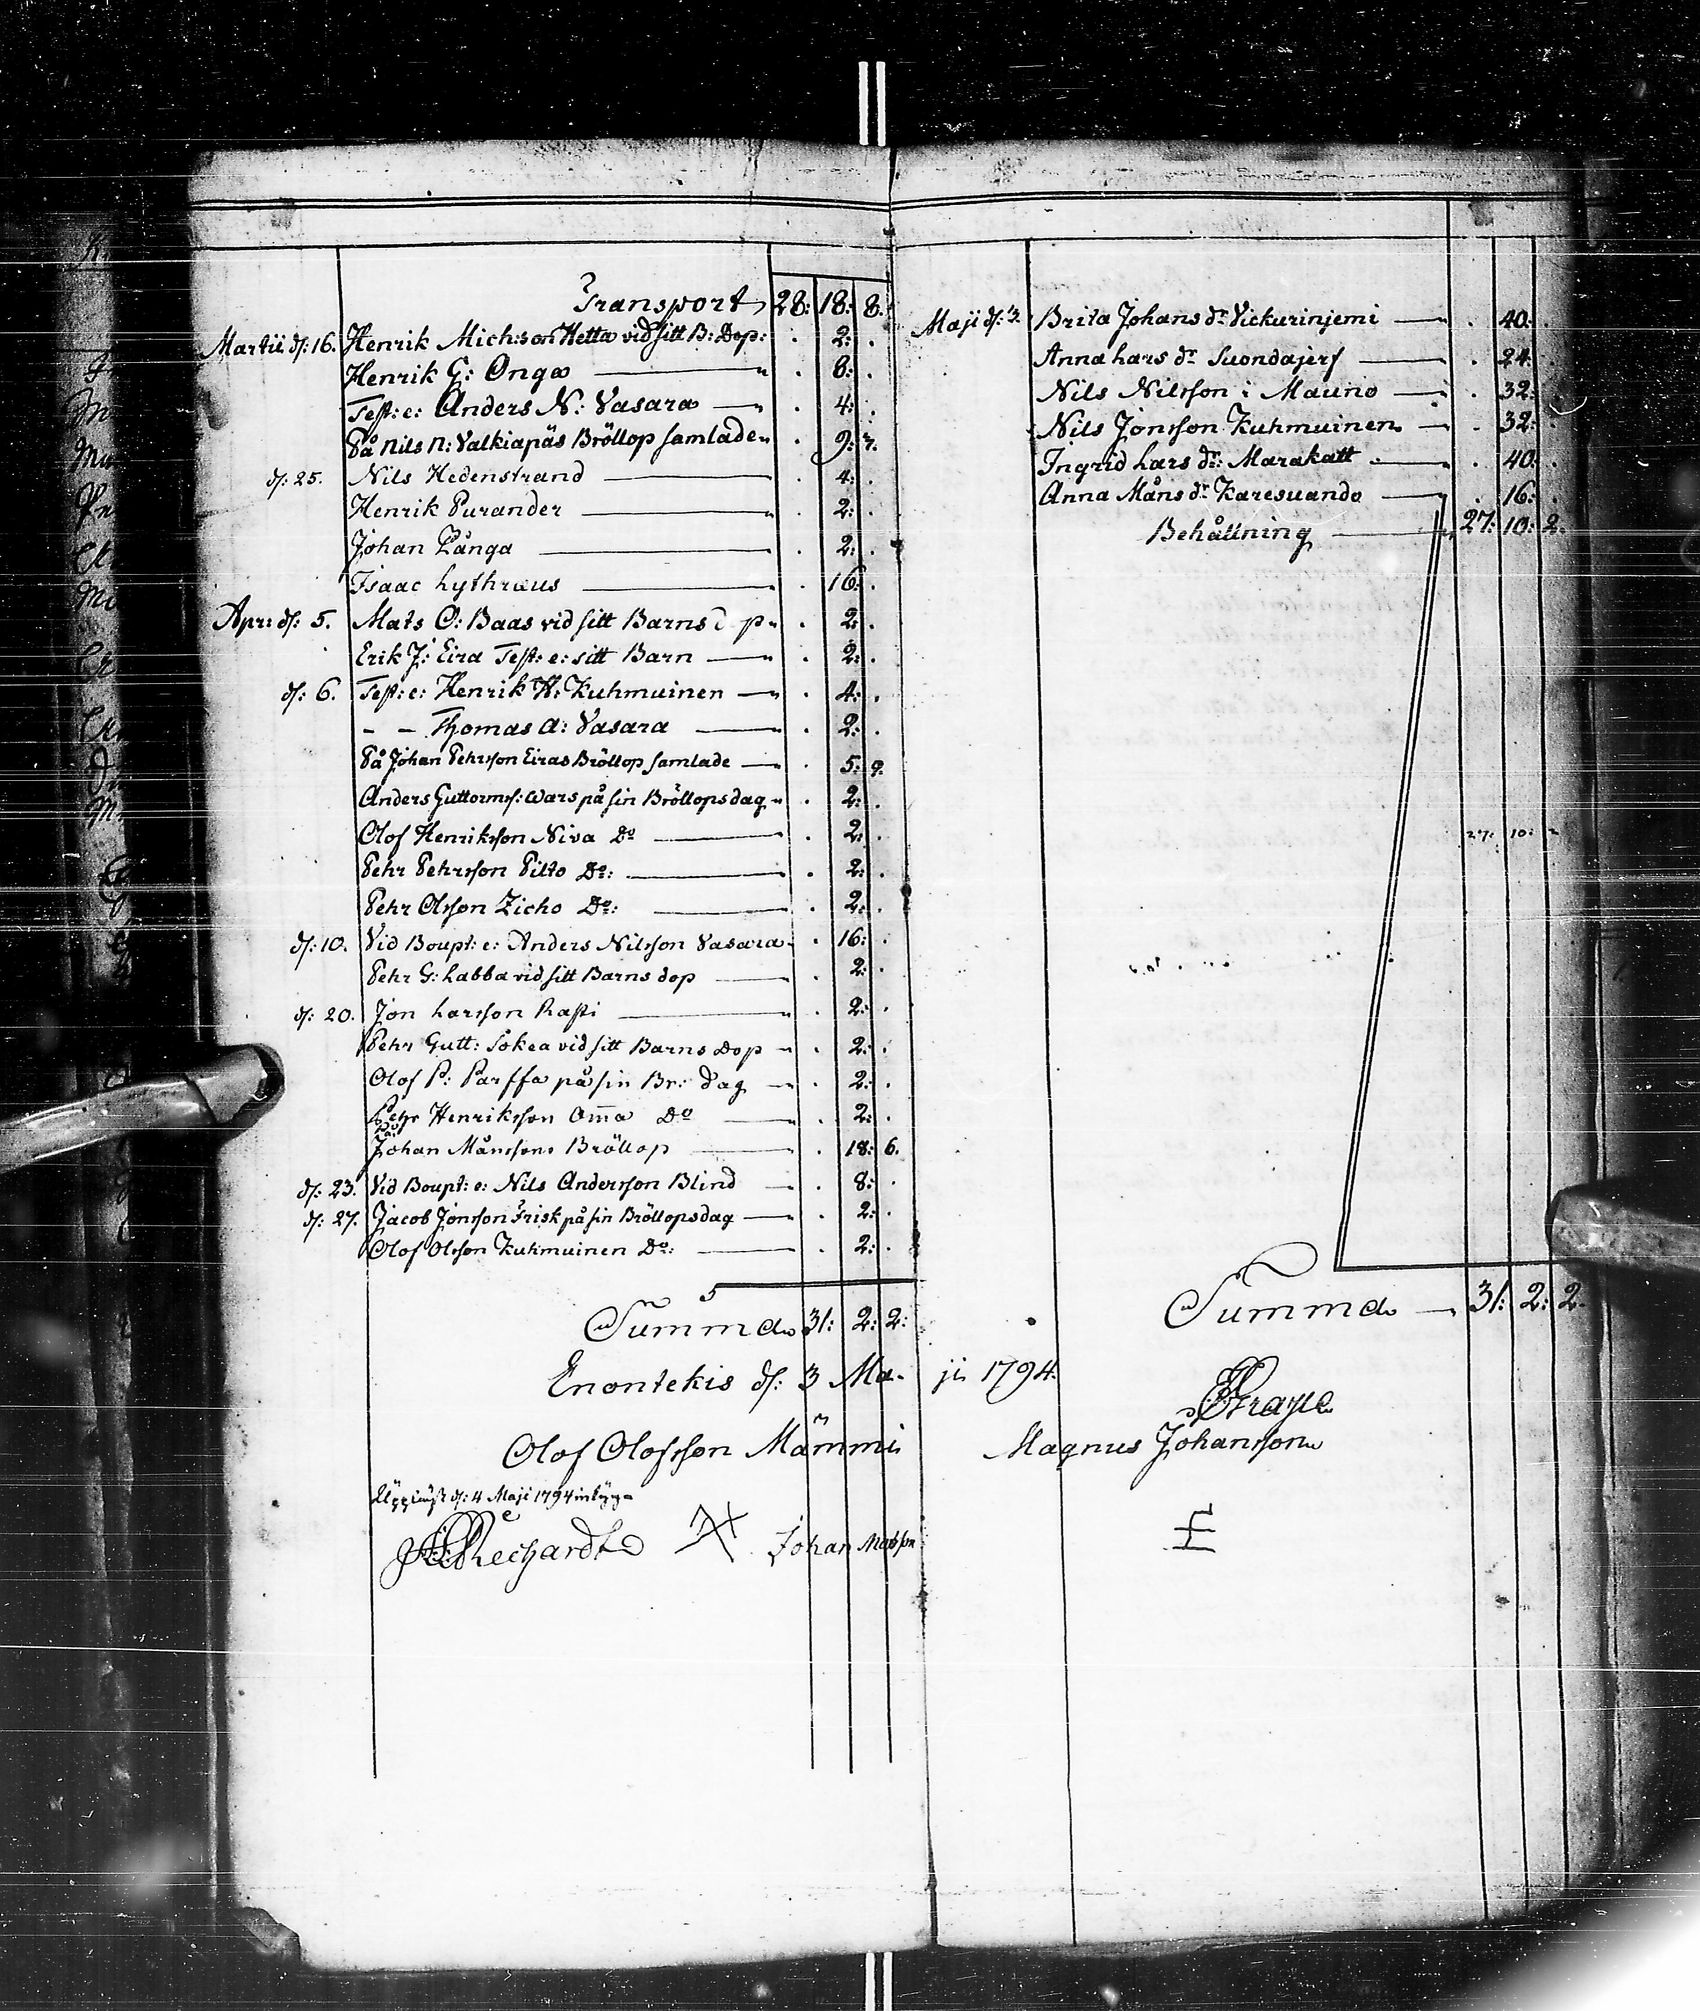 Transport 28: 18: 8.
Martii d: 16. Henrik Mich:son Hetta vid sitt B: Dop: . 2: .
Henrik G: Onga . 8: .
Test: e: Anders N: Vasara . 4: .
På Nils N: Valkiapäs Bröllop samlade . 9: 7.
d: 25. Nils Hedenstrand . 4: .
Henrik Purander . 2: .
Johan Långa . 2: .
Isaac Lythraeus . 16: .
Apr: d: 5. Mats O: Baas vid sitt Barns dop . 2: .
Erik J: Eira Test: e: sitt Barn . 2: .
d: 6. Test: e: Henrik H: Kuhmuinen . 4: .
– – Thomas A: Vasara . 2: .
På Johan Pehrsson Eiras Bröllop samlade . 5: 9.
Anders Guttorms: Wars på sin Bröllopsdag . 2: .
Olof Henriksson Niva Do . 2: .
Pehr Pehrsson Pilto Do: . 2: .
Pehr Olsson Zicho Do: . 2: .
d: 10. Vid Boupt: e: Anders Nilsson Vasara . 16: .
Pehr G: Labba vid sitt Barns dop . 2: .
d: 20. Jon Larsson Rasti . 2: .
Pehr Gutt: Sokea vid sitt Barns Dop . 2: .
Olof P: Parffa på sin Br: dag . 2: .
Pehr Henriksson Om̄a Do . 2: .
På Johan Månssons Bröllop . 18: 6.
d: 23. Vid Boupt: e: Nils Andersson Blind . 8: .
d: 27. Jacob Jonsson Frisk på sin Bröllopsdag . 2: .
Olof Olsson Kuhmuinen Do: . 2: .
Summa 31: 2: 2:
Maji d: 3. Brita Johans dr Vickurinjemi . 40: .
Anna Lars dr Suondajerf . 24: .
Nils Nilsson i Mauno . 32: .
Nils Jonsson Kuhmuinen . 32: .
Ingrid Lars dr: Marakatt . 40: .
Anna Måns dr Karesuando . 16: .
Behållning 27: 10: 2.
27: 10: 2
Summa 31: 2: 2.
Enontekis d: 3 Maji 1794.
Grape
Olof Olofsson Mämmi Magnus Johansson
d: 4 Maji 1794
Johan Matsson